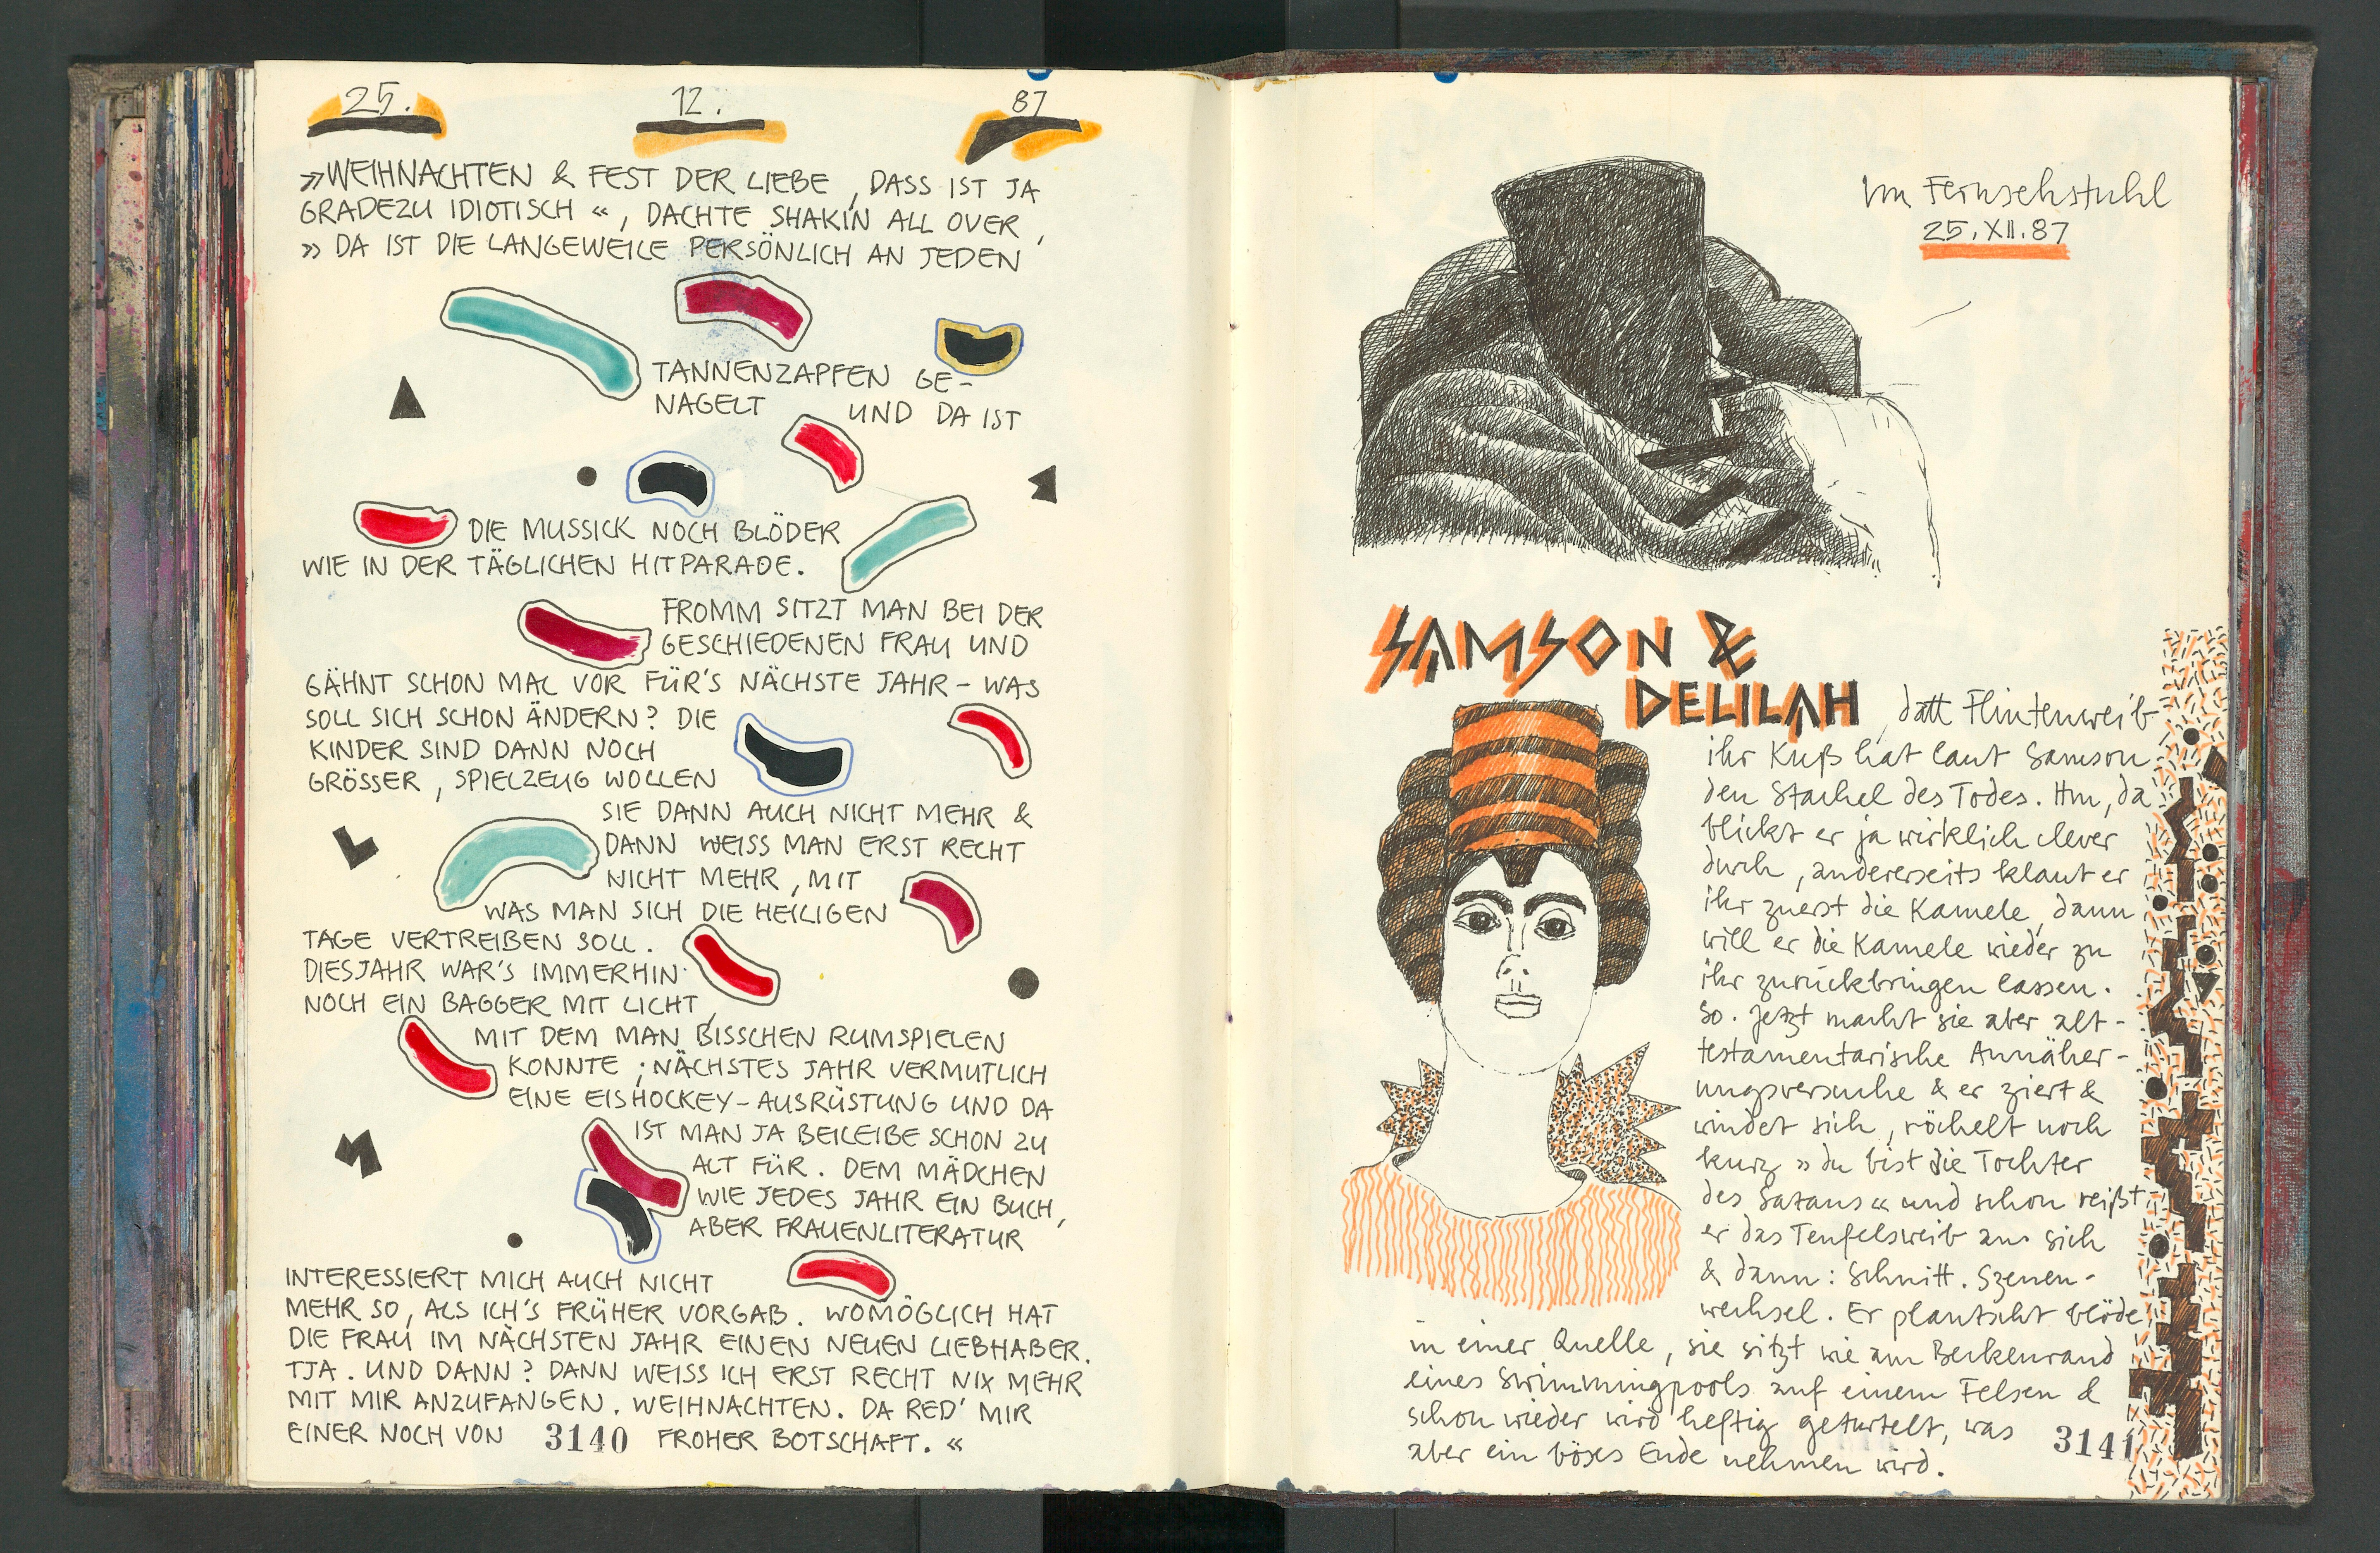 25. 12. 87
»WEIHNACHTEN & FEST DER LIEBE, DASS IST JA
GRADEZU IDIOTISCH«, DACHTE SHAKIN ALL OVER,
»DA IST DIE LANGEWEILE PERSÖNLICH AN JEDEN
TANNENZAPFEN GE-
NAGELT UND DA IST
DIE MUSSICK NOCH BLÖDER
WIE IN DER TÄGLICHEN HITPARADE.
FROMM SITZT MAN BEI DER
GESCHIEDENEN FRAU UND
GÄHNT SCHON MAL VOR FÜR'S NÄCHSTE JAHR – WAS
SOLL SICH SCHON ÄNDERN? DIE
KINDER SIND DANN NOCH
GRÖSSER, SPIELZEUG WOLLEN
SIE DANN AUCH NICHT MEHR &
DANN WEISS MAN ERST RECHT
NICHT MEHR, MIT
WAS MAN SICH DIE HEILIGEN
TAGE VERTREIBEN SOLL.
DIESJAHR WAR'S IMMERHIN
NOCH EIN BAGGER MIT LICHT,
MIT DEM MAN BISSCHEN RUMSPIELEN
KONNTE; NÄCHSTES JAHR VERMUTLICH
EINE EISHOCKEY-AUSRÜSTUNG UND DA
IST MAN JA BEILEIBE SCHON ZU
ALT FÜR. DEM MÄDCHEN
WIE JEDES JAHR EIN BUCH,
ABER FRAUENLITERATUR
INTERESSIERT MICH AUCH NICHT
MEHR SO, ALS ICH'S FRÜHER VORGAB. WOMÖGLICH HAT
DIE FRAU IM NÄCHSTEN JAHR EINEN NEUEN LIEBHABER.
TJA. UND DANN? DANN WEISS ICH ERST RECHT NIX MEHR
MIT MIR ANZUFANGEN. WEIHNACHTEN. DA RED' MIR
EINER NOCH VON FROHER BOTSCHAFT.«
3140
Im Fernsehstuhl
25.XII.87
SAMSON &
DELILAH, datt Flintenweib
ihr Kuß hat laut Samson
den Stachel des Todes. Hm, da
blickt er ja wirklich clever
durch, andererseits klaut er
ihr zuerst die Kamele, dann
will er die Kamele wieder zu
ihr zurückbringen lassen.
So. Jetzt macht sie aber alt-
testamentarische Annäher-
ungsversuche & er ziert &
windet sich, röchelt noch
kurz »du bist die Tochter
des Satans« und schon reißt
er das Teufelsweib an sich
& dann: Schnitt. Szenen-
wechsel. Er plantscht blöde
in einer Quelle, sie sitzt wie am Beckenrand
eines Swimmingpools auf einem Felsen &
schon wieder wird heftig geturtelt, was
aber ein böses Ende nehmen wird.
3141